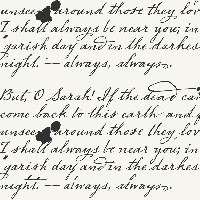 unseen around those they lov
I shall always be near you; in
garish day and in the darkes
night. -- always, always.
But, O Sarah! If the dead can
come back to this earth and f
unseen around those they lov
I shall always be near you; in
garish day and in the darkes
night. -- always, always.